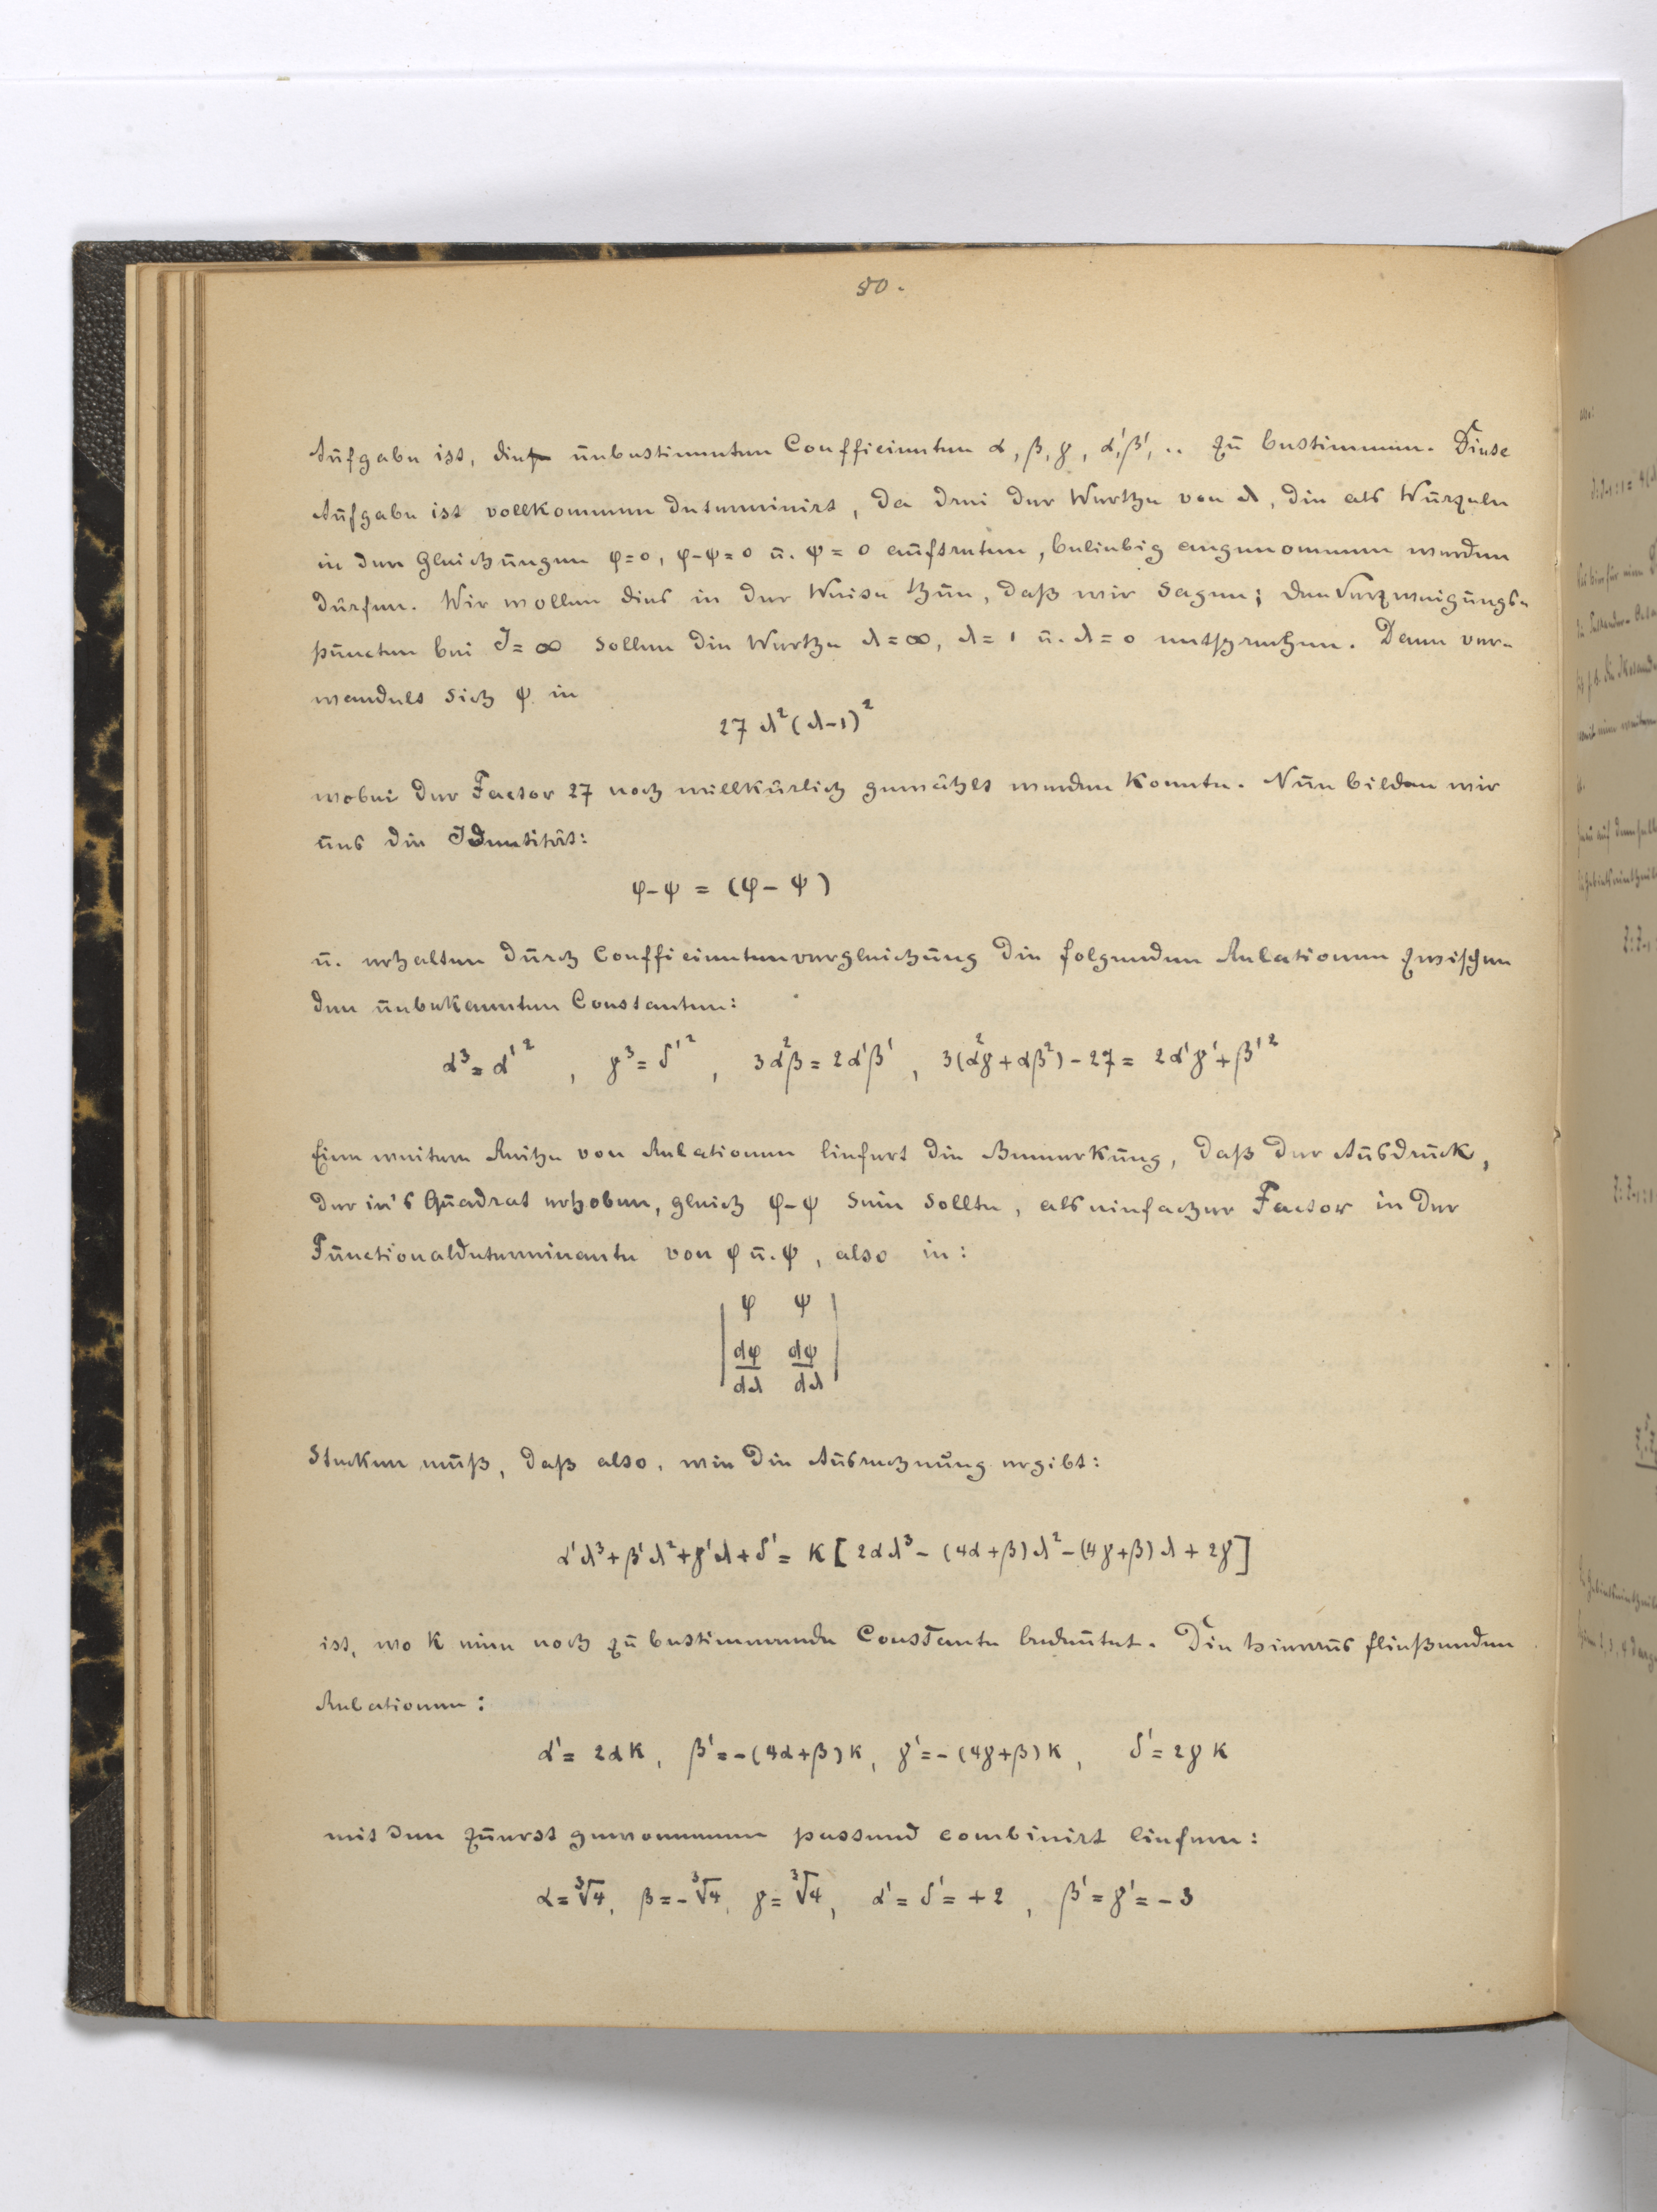 50.
Aufgabe ist, die unbestimmten Coefficienten α, β, γ, α', β', .. zu bestimmen. Diese
Aufgabe ist vollkommen determinirt, da drei der Werthe von λ, die als Wurzeln
in den Gleichungen φ=0, φ-ψ=0 u. ψ=0 auftreten, beliebig angenommen werden
dürfen. Wir wollen dies in der Weise thun, daß wir sagen; den Verzweigungs-
puncten bei J=∞ sollen die Werthe λ=∞, λ=1 u. λ=0 entsprechen. Dann ver-
wandelt sich ψ in
27 λ²(λ-1)²
wobei der Factor 27 noch willkürlich gewählt werden konnte. Nun bilden wir
uns die Identität:
φ-ψ = (φ-ψ)
u. erhalten durch Coefficientenvergleichung die folgenden Relationen zwischen
den unbekannten Constanten:
α³=α'², γ³=δ'², 3α²β=2α'β', 3(α²γ+αβ²)-27= 2α'γ'+β'²
Eine weitere Reihe von Relationen liefert die Bemerkung, daß der Ausdruck,
der in's Quadrat erhoben, gleich φ-ψ sein sollte, als einfacher Factor in der
Functionaldeterminante von φ u. ψ, also in:
| φ ψ |
| dφ/dλ dψ/dλ |
stecken muß, daß also, wie die Ausrechnung ergibt:
α'λ³+β'λ²+γ'λ+δ' = K[2αλ³-(4α+β)λ²-(4γ+β)λ+2γ]
ist, wo K eine noch zu bestimmende Constante bedeutet. Die hieraus fließenden
Relationen:
α'=2αK, β'=-(4α+β)K, γ'=-(4γ+β)K, δ'=2γK
mit den zuerst gewonnenen passend combinirt liefern:
α=∛4, β=-∛4, γ=∛4, α'=δ'=+2, β'=γ'=-3